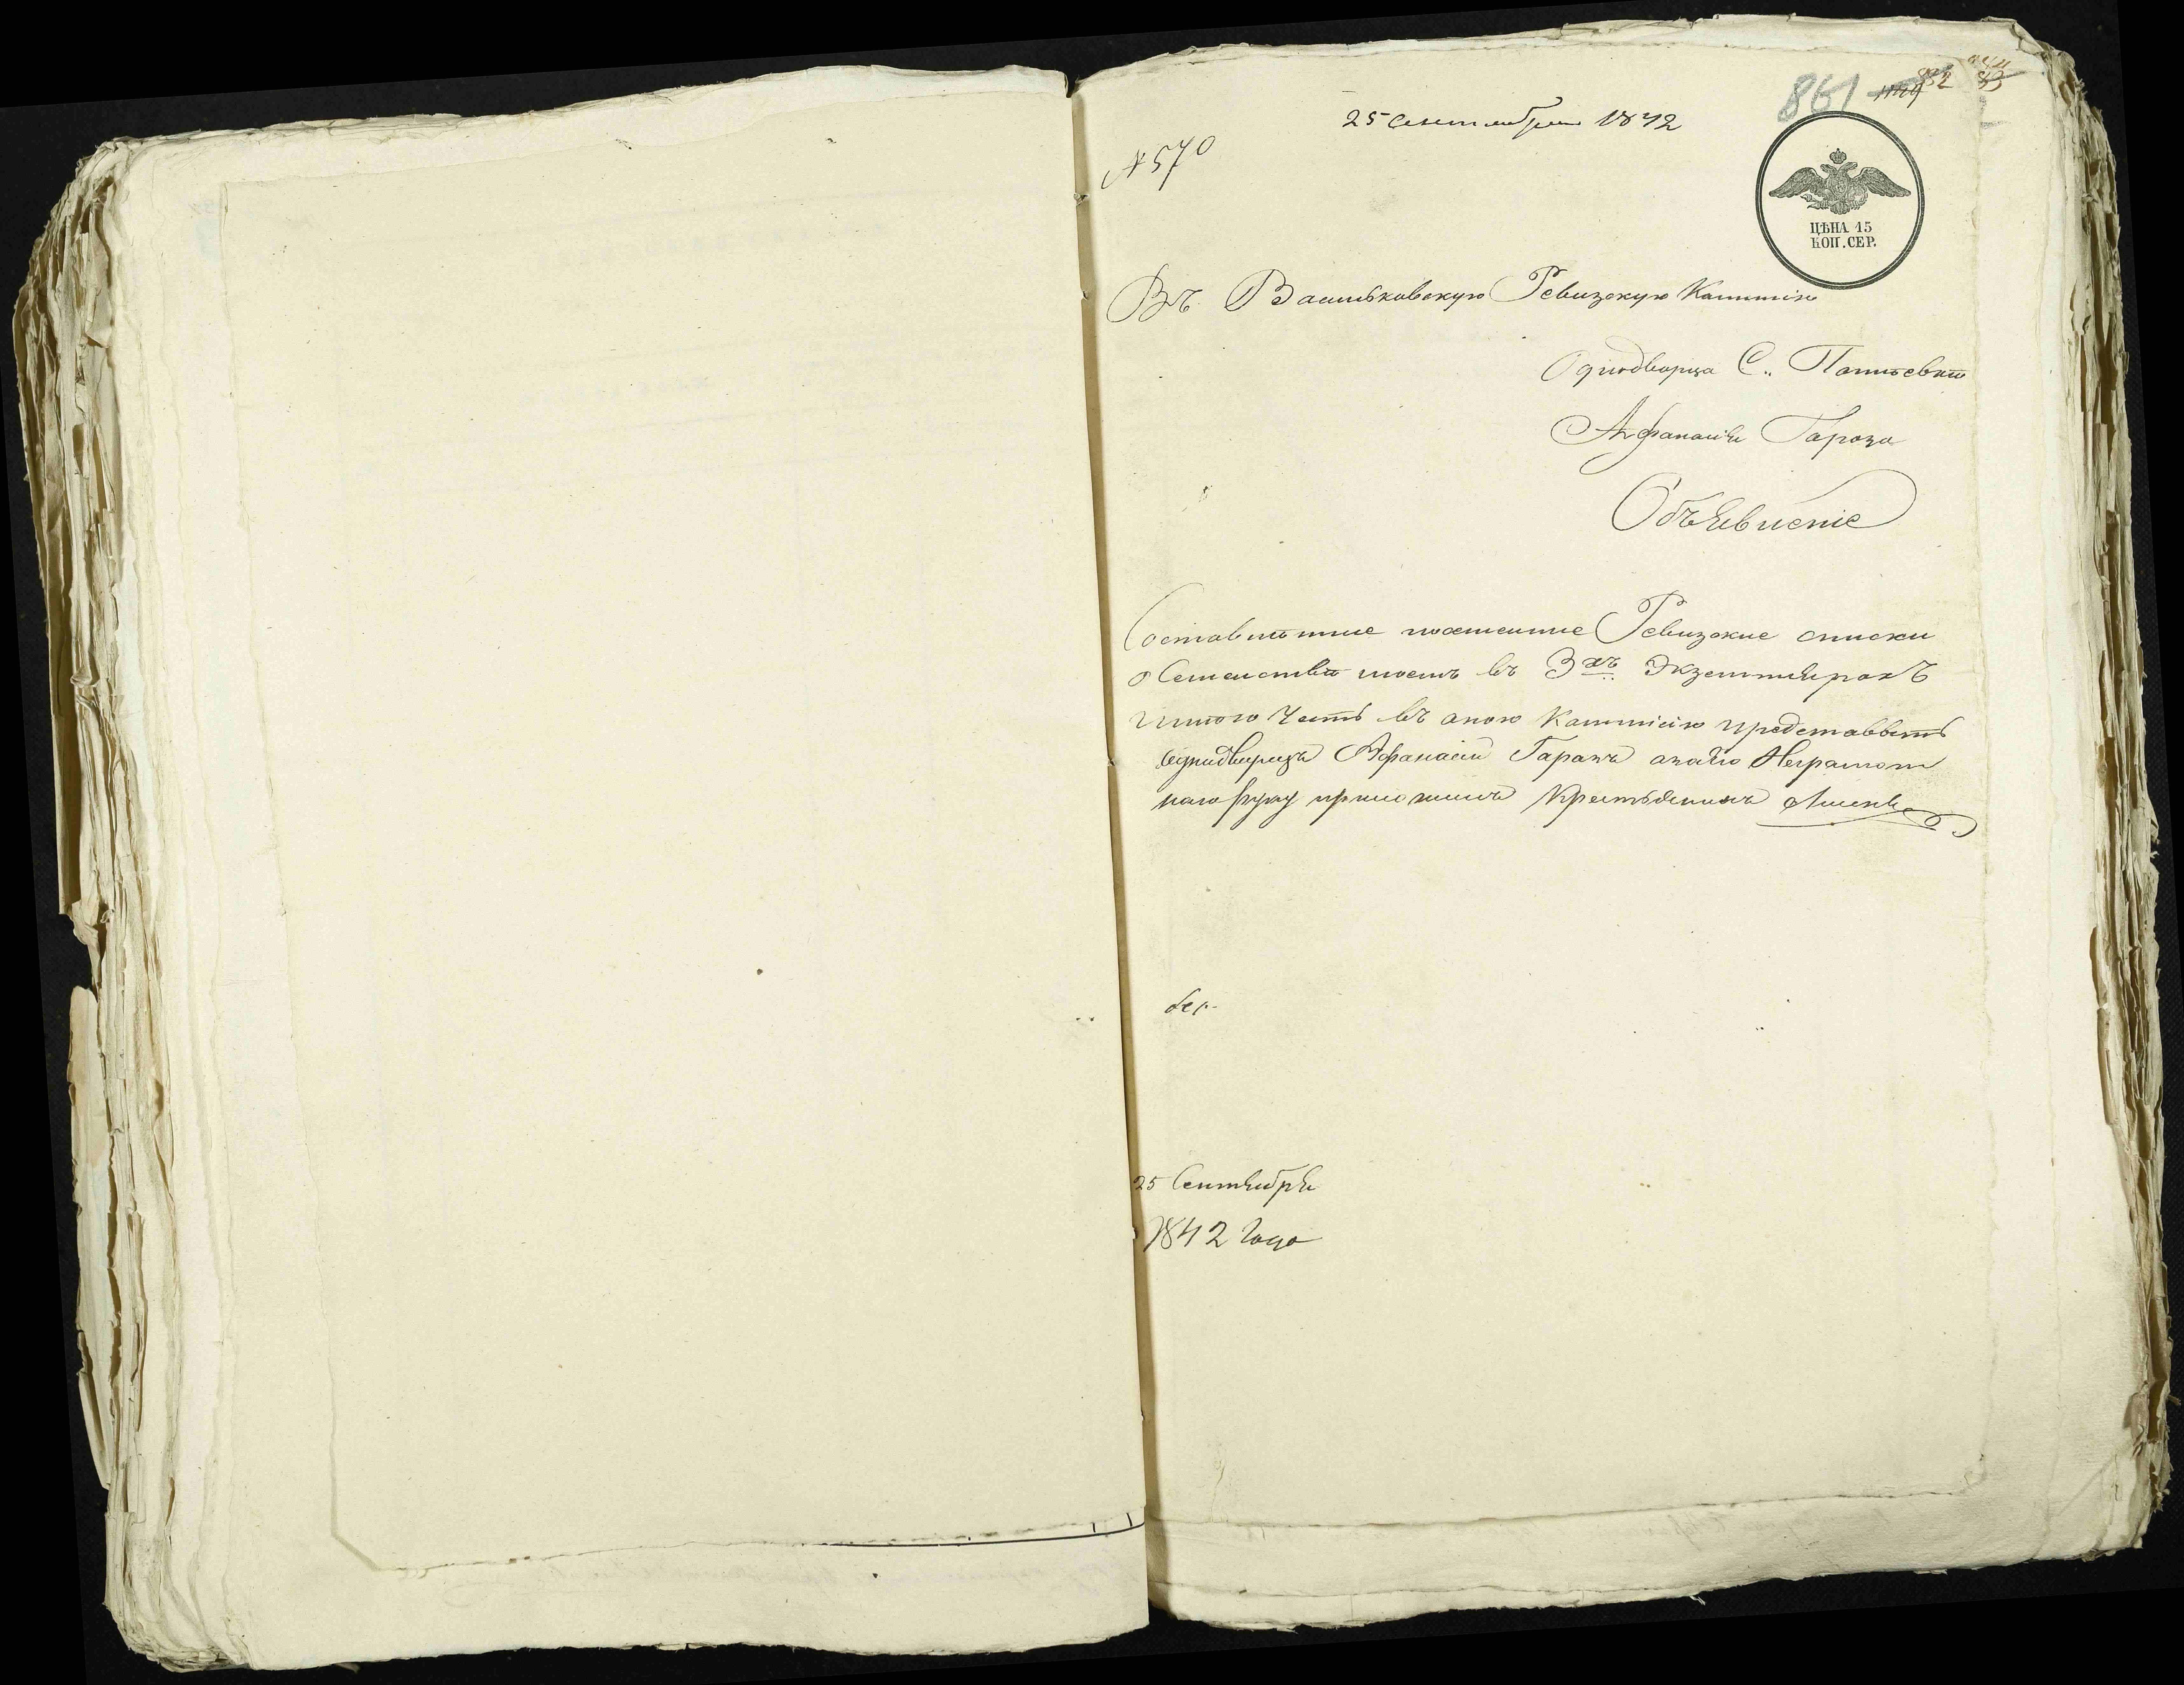 861
25 Сентября 1842
№ 570
ЦѢНА 15
КОП. СЕР.
Въ Васильковскую Ревизскую Комисію
Однодворца С. Попиевки
Афанасія Гароза
Объявленіе
Составленные Ревизские списки
о Семействѣ моемъ въ 3хъ Экземплярахъ
имѣю Честь въ оную Коммисію представить
однодворецъ Афанасій Гарозъ а за его Неграмот
наго руку приложилъ Крестьянинъ
25 Сентября
1842 Года